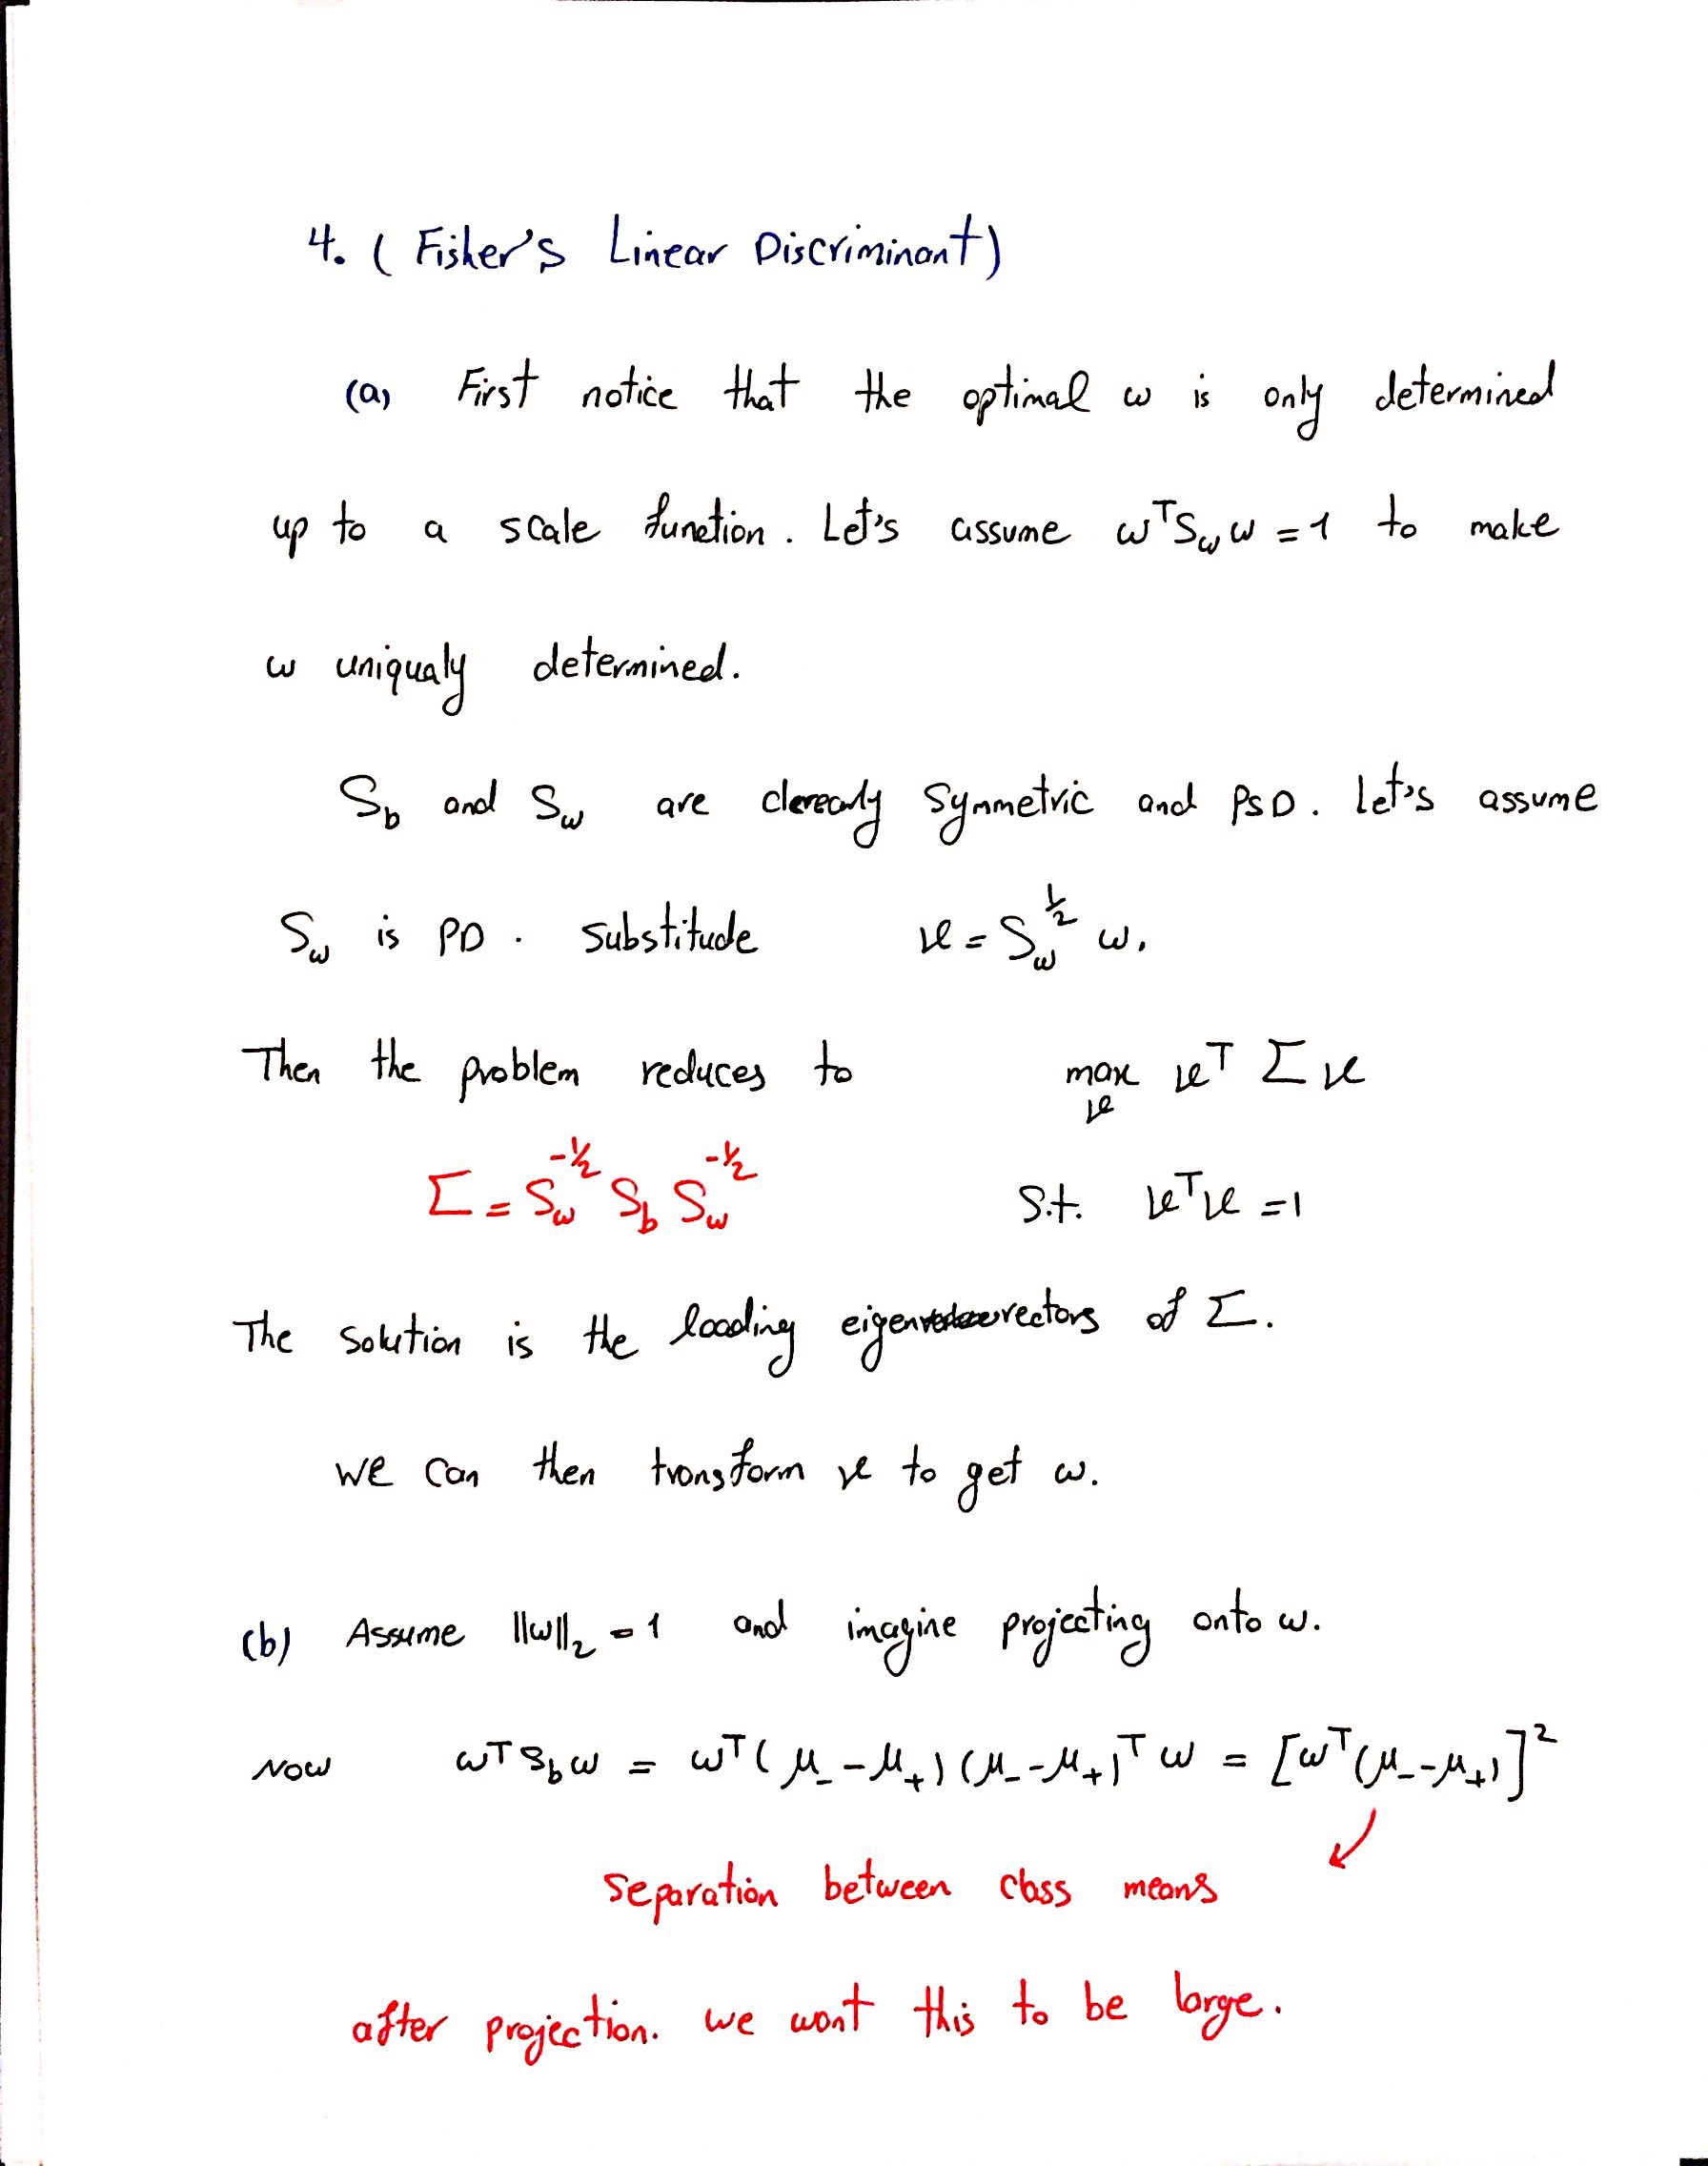 4. ( Fisher's Linear Discriminant)
(a) First notice that the optimal w is only determined
up to a scale function. Let's assume wᵀS_w w = 1 to make
w uniqualy determined.
S_b and S_w are clerearly symmetric and PSD. Let's assume
S_w is PD. Substitude v = S_w^{1/2} w.
Then the problem reduces to max_v vᵀ Σ v
Σ = S_w^{-1/2} S_b S_w^{-1/2} S.t. vᵀv = 1
The solution is the leading eigenvectors of Σ.
We can then transform v to get w.
(b) Assume ||w||₂ = 1 and imagine projecting onto w.
Now wᵀS_b w = wᵀ(μ₋ - μ₊)(μ₋ - μ₊)ᵀ w = [wᵀ(μ₋ - μ₊)]²
Separation between class means
after projection. We want this to be large.